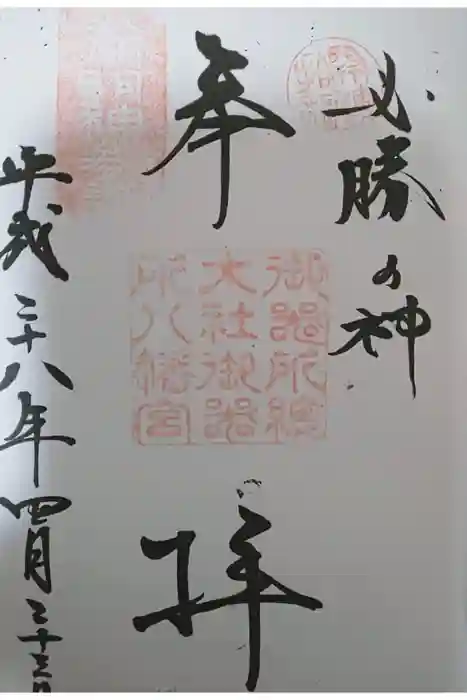 必勝の神
奉拝
御器所総
大社御器
所八幡宮
平成二十八年四月二十三日